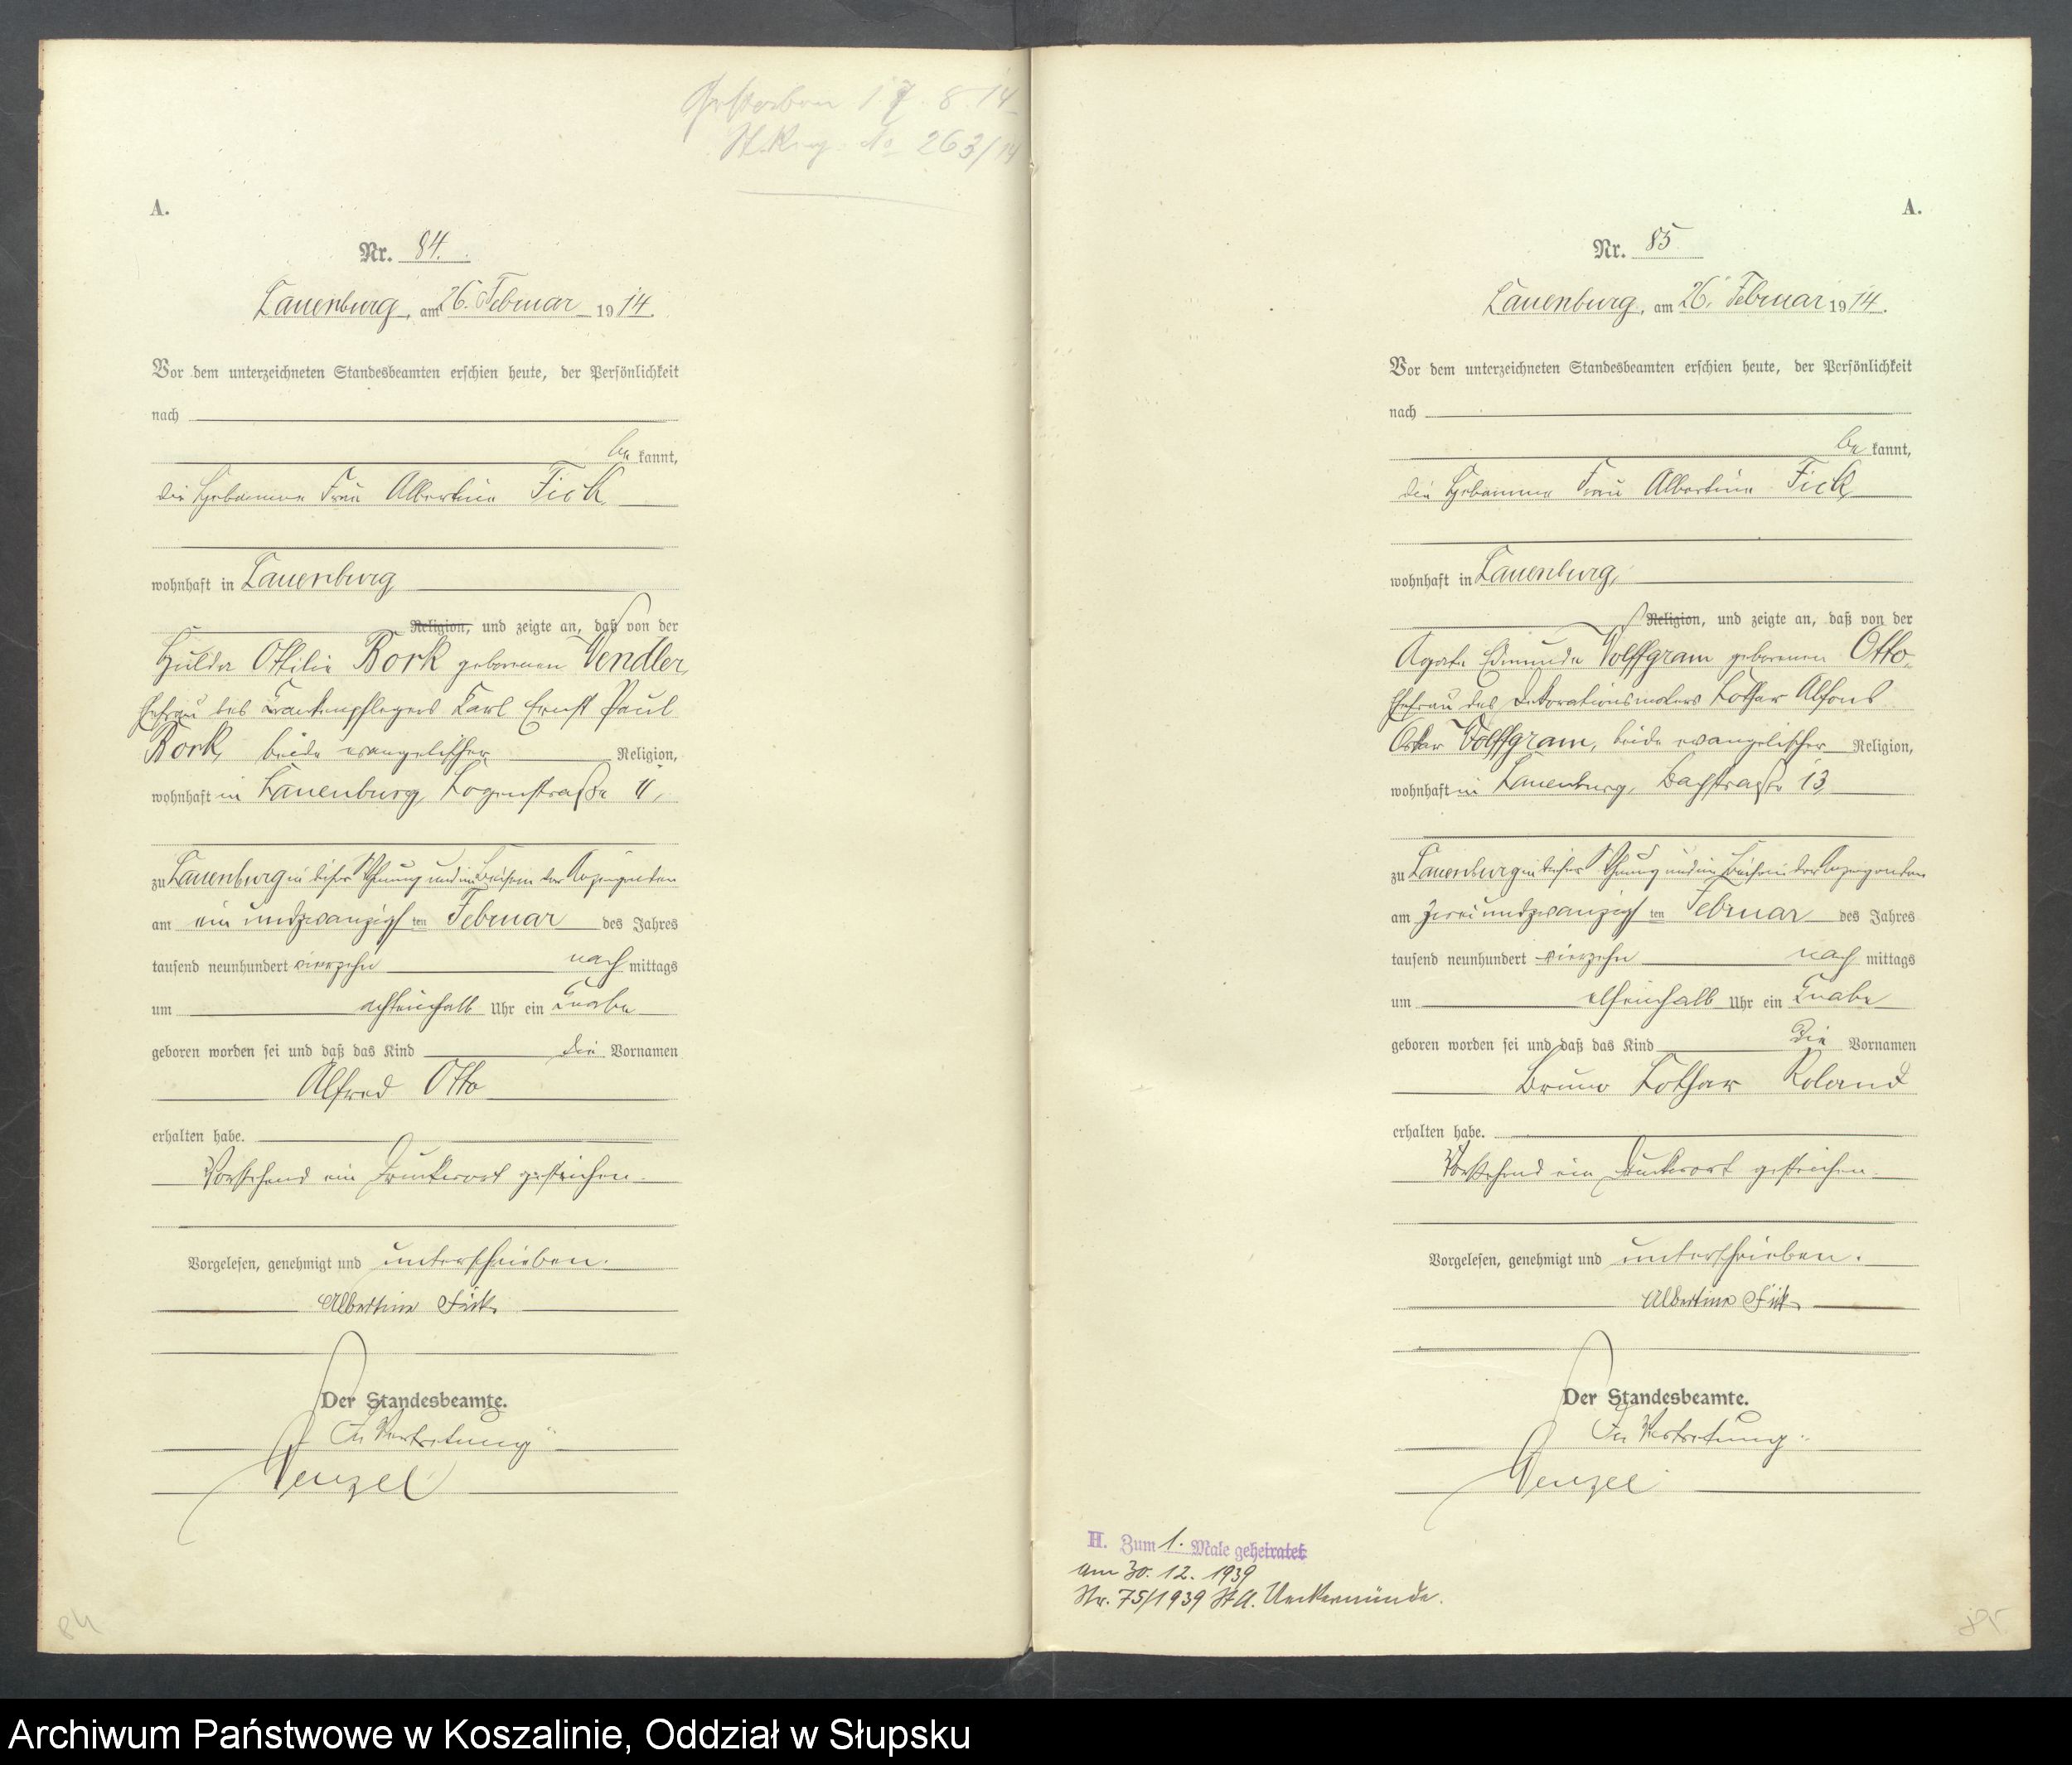 Gestorben 17. 8. 14
St. Reg. No 263/14
A.
Nr. 84.
Lauenburg, am 26. Februar 1914.
Vor dem unterzeichneten Standesbeamten erschien heute, der Persönlichkeit
nach
be kannt,
die Hebamme Frau Albertine Fick
wohnhaft in Lauenburg,
Religion, und zeigte an, daß von der
Hulda Ottilie Bork geborenen Wendler,
Ehefrau des Krankenpflegers Karl Ernst Paul
Bork, beide evangelischer Religion,
wohnhaft in Lauenburg, Logenstraße 11,
zu Lauenburg in dieser Wohnung und im Beisein der Anzeigenden
am ein und zwanzigsten Februar des Jahres
tausend neunhundert vierzehn nach mittags
um achteinhalb Uhr ein Knabe
geboren worden sei und daß das Kind die Vornamen
Alfred Otto
erhalten habe.
Vorstehend ein Druckwort gestrichen.
Vorgelesen, genehmigt und unterschrieben.
Albertine Fick
Der Standesbeamte.
In Vertretung
Wenzel
84
A.
Nr. 85
Lauenburg, am 26. Februar 1914.
Vor dem unterzeichneten Standesbeamten erschien heute, der Persönlichkeit
nach
be kannt,
die Hebamme Frau Albertine Fick,
wohnhaft in Lauenburg,
Religion, und zeigte an, daß von der
Agate Edmunda Wolffgram geborenen Otto,
Ehefrau des Dekorationsmalers Lothar Alfons
Oskar Wolffgram, beide evangelischer Religion,
wohnhaft in Lauenburg, Bachstraße 13,
zu Lauenburg in dieser Wohnung und im Beisein der Anzeigenden
am zwei und zwanzigsten Februar des Jahres
tausend neunhundert vierzehn nach mittags
um elfeinhalb Uhr ein Knabe
geboren worden sei und daß das Kind die Vornamen
Bruno Lothar Roland
erhalten habe.
Vorstehend ein Druckwort gestrichen.
Vorgelesen, genehmigt und unterschrieben.
Albertine Fick
Der Standesbeamte.
In Vertretung.
Wenzel
H. Zum 1. Male geheiratet
am 30. 12. 1939
Nr. 75/1939 St.A. Ueckermünde.
Archiwum Państwowe w Koszalinie, Oddział w Słupsku